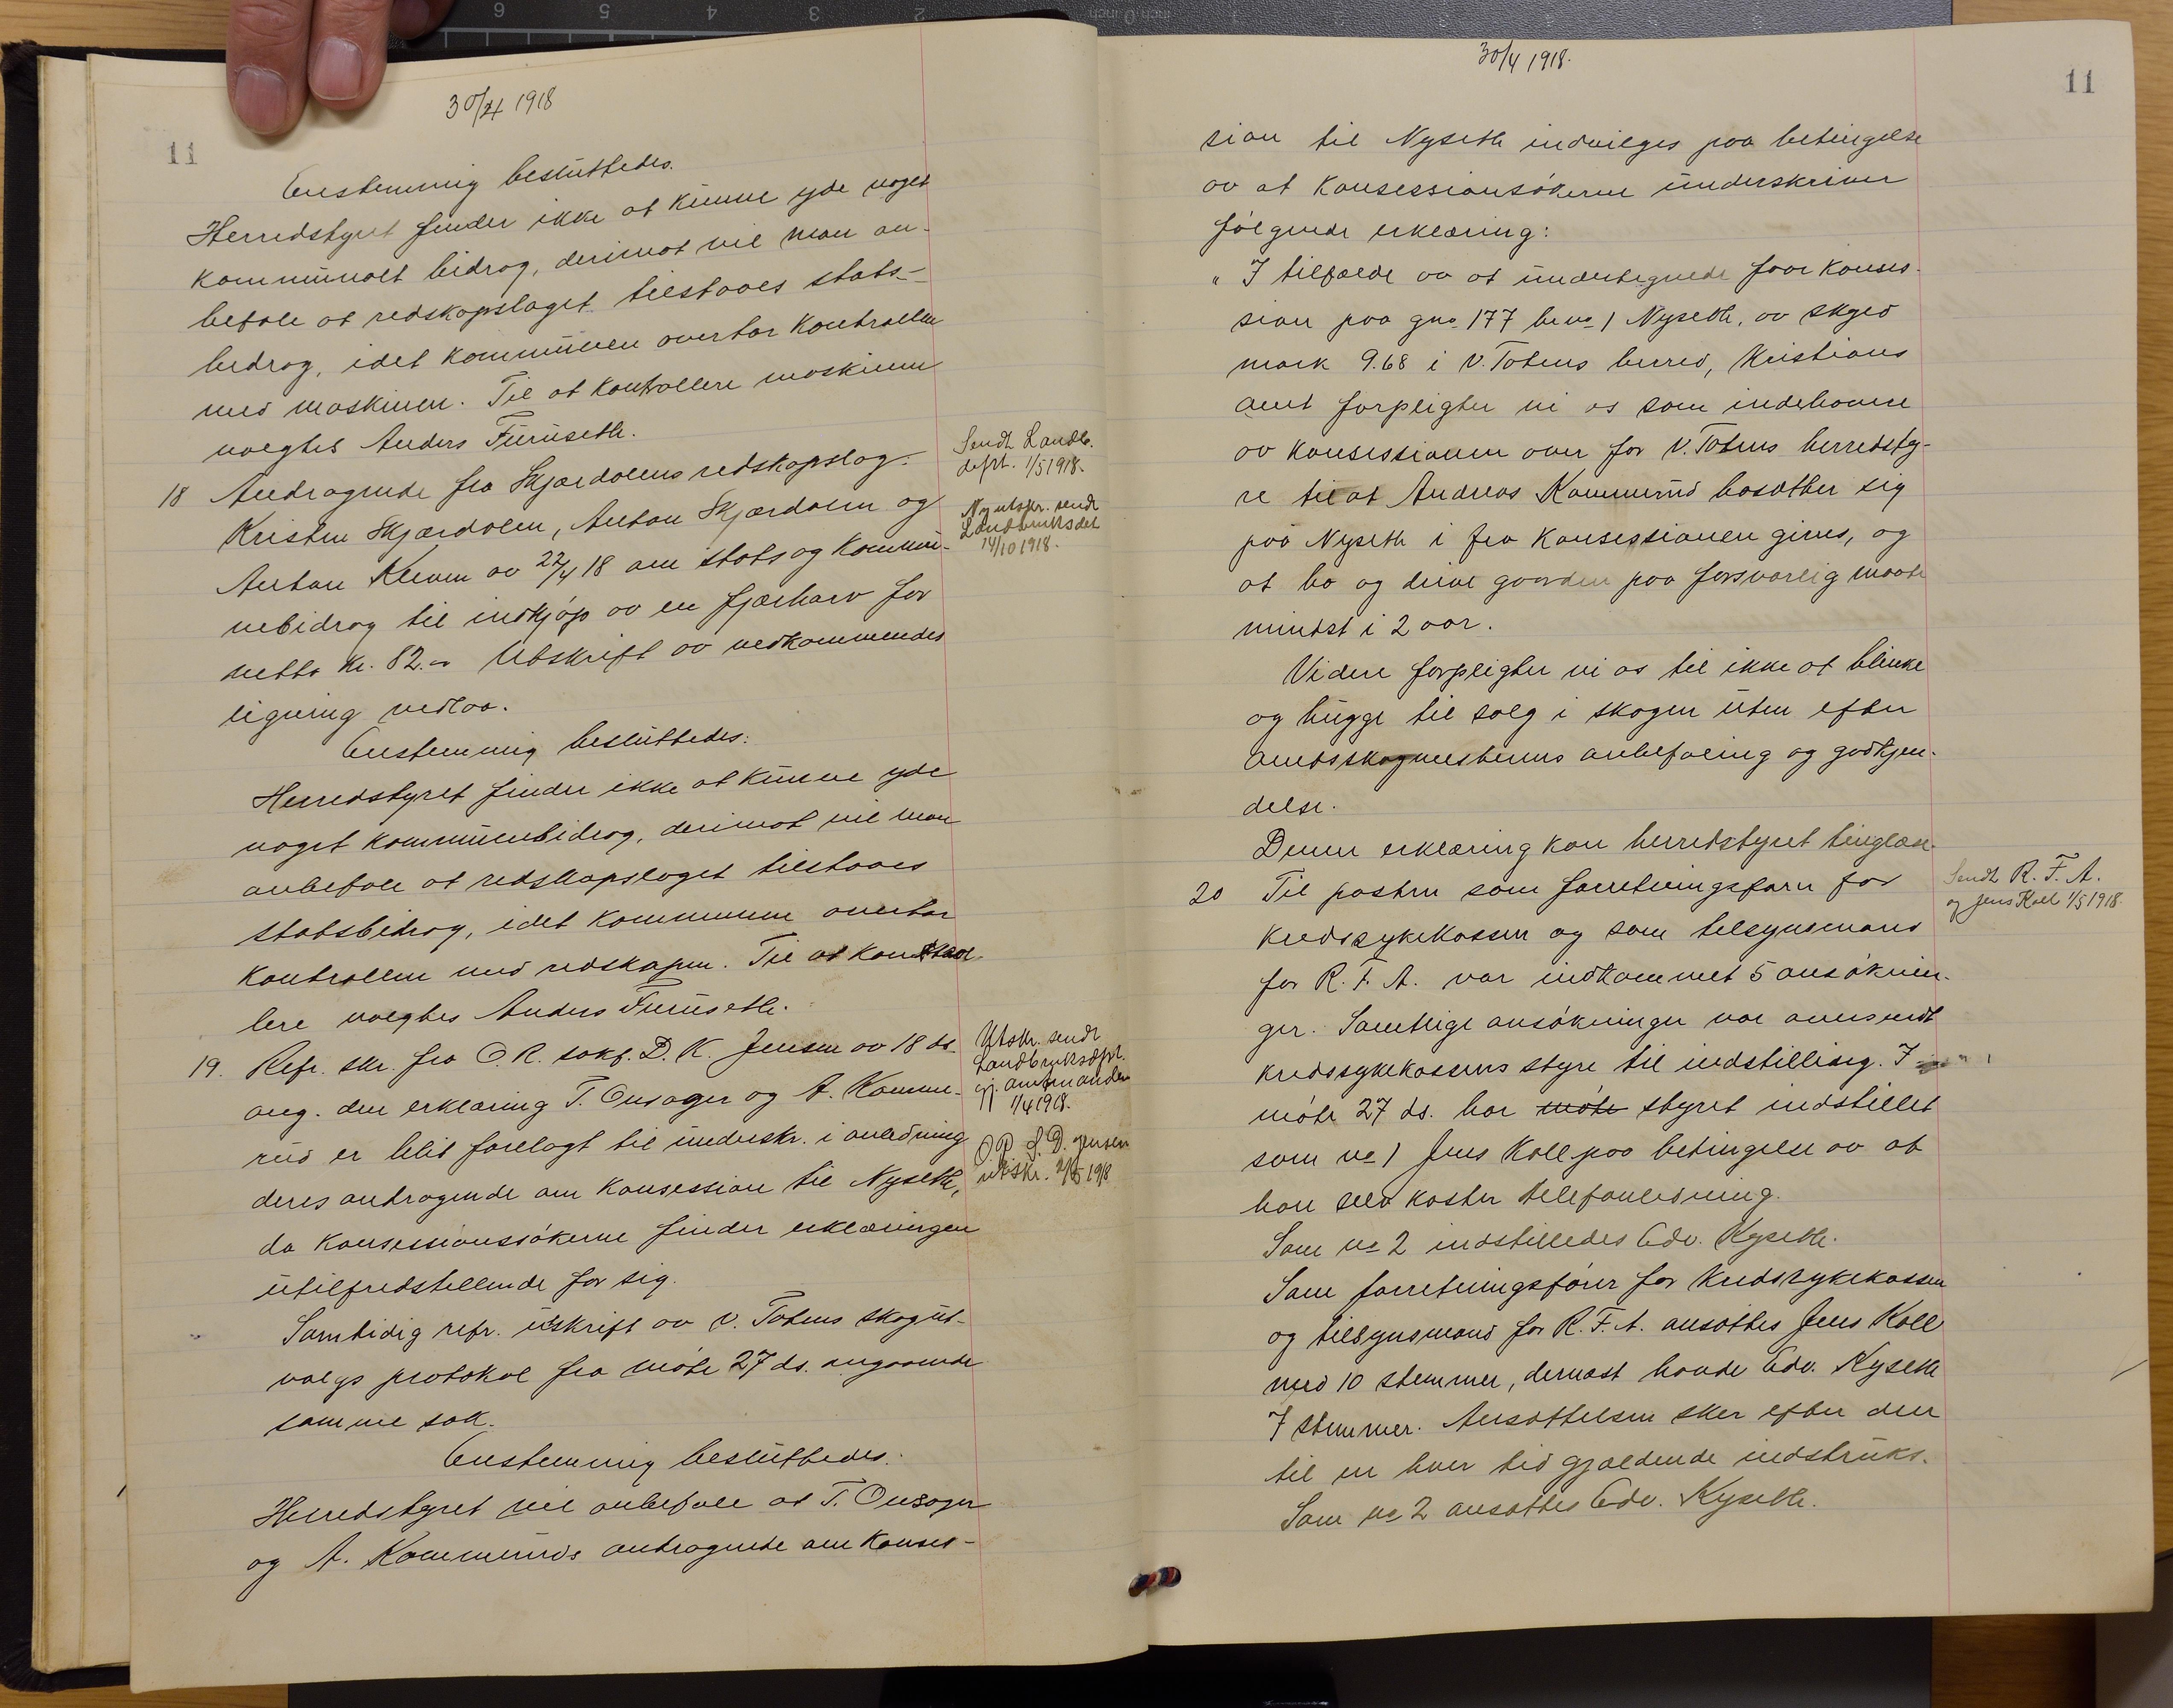 30/4 1918
11
Enstemmig besluttedes.
Herredstyret finder ikke at kunne yde noget
kommunalt bidrag, derimot vil man an-
befale at redskapslaget tilstaaes stats-
bidrag, idet kommunen overtar kontrollen
med maskinen. Til at kontrollere maskinen
valgtes Anders Furuseth.
18 Andragende fra Skjærdalens redskapslag.
Kristen Skjærdalen, Anton Skjærdalen og
Anton Kleven av 22/4 18 om stats og kommu-
nebidrag til indkjøp av en fjærharv for
netto kr. 82.- Utskrift av vedkommendes
ligning vedlaa.
Enstemmig besluttedes:
Herredstyret finder ikke at kunne yde
noget kommunebidrag, derimot vil man
anbefale at redskapslaget tilstaaes
statsbidrag, idet kommunen overtar
kontrollen med redskapen. Til at kontrol-
lere valgtes Anders Furuseth.
19. Refr. skr. fra O.R. sakf. D. K. Jensen av 18 ds.
ang. den erklæring T. Onsager og A. Kamme-
rud er blit forelagt til underskr. i anledning
deres andragende om konsession til Nyseth,
da konsessionssøkerne finder erklæringen
utilfredstillende for sig.
Samtidig refr. utskrift av V. Totens skogut-
valgs protokol fra møte 27 ds. angaaende
samme sak.
Enstemmig besluttedes:
Herredstyret vil anbefale at T. Onsager
og A. Kammeruds andragende om konses-
Sendt Landb.
dept. 1/5 1918.
Ny utskr. sendt
Landbruksdet
14/10 1918.
Utskr. sendt
Landbruksdpt.
gj. amtmanden
1/4 1918.
O.R S. D. Jensen
utskr. 2/5 1918
30/4 1918.
11
sion til Nyseth indvilges paa betingelse
av at konsessionsøkerne underskriver
følgende erklæring:
" I tilfælde av at undertegnede faar konses-
sion paa gno 177 bno 1 Nyseth, av skyld
mark 9.68 i V. Totens herred, Kristians
amt forpligter vi os som indehavere
av konsessionen over for V. Totens herredsty-
re til at Andreas Kammerud bosætter sig
paa Nyseth i fra konsessionen gives, og
at bo og drive gaarden paa forsvarlig maate
mindst i 2 aar.
Videre forpligter vi os til ikke at blinke
og hugge til salg i skogen uten efter
amtsskogmesterens anbefaling og godkjen-
delse.
Denne erklæring kan herredstyret tinglæse.
20 Til posten som forretningsfører for
kredssykekassen og som tilsynsmand
for R. F. A. var indkommet 5 ansøknin-
ger. Samtlige ansøkninger var oversendt
kredssykekassens styre til indstilling. I
møte 27 ds. har møte styret indstillet
som no 1 Jens Koll paa betingelse av at
han selv koster telefonledning.
Som no 2 indstilledes Edv. Kyseth.
Som forretningsfører for kredssykekassen
og tilsynsmand for R. F. A. ansattes Jens Koll
med 10 stemmer, dernæst havde Edv. Kyseth
7 stemmer. Ansættelsen sker efter den
til en hver tid gjældende indstruks.
Som no 2 ansattes Edv. Kyseth.
Sendt R. F. A.
og Jens Koll 1/5 1918.